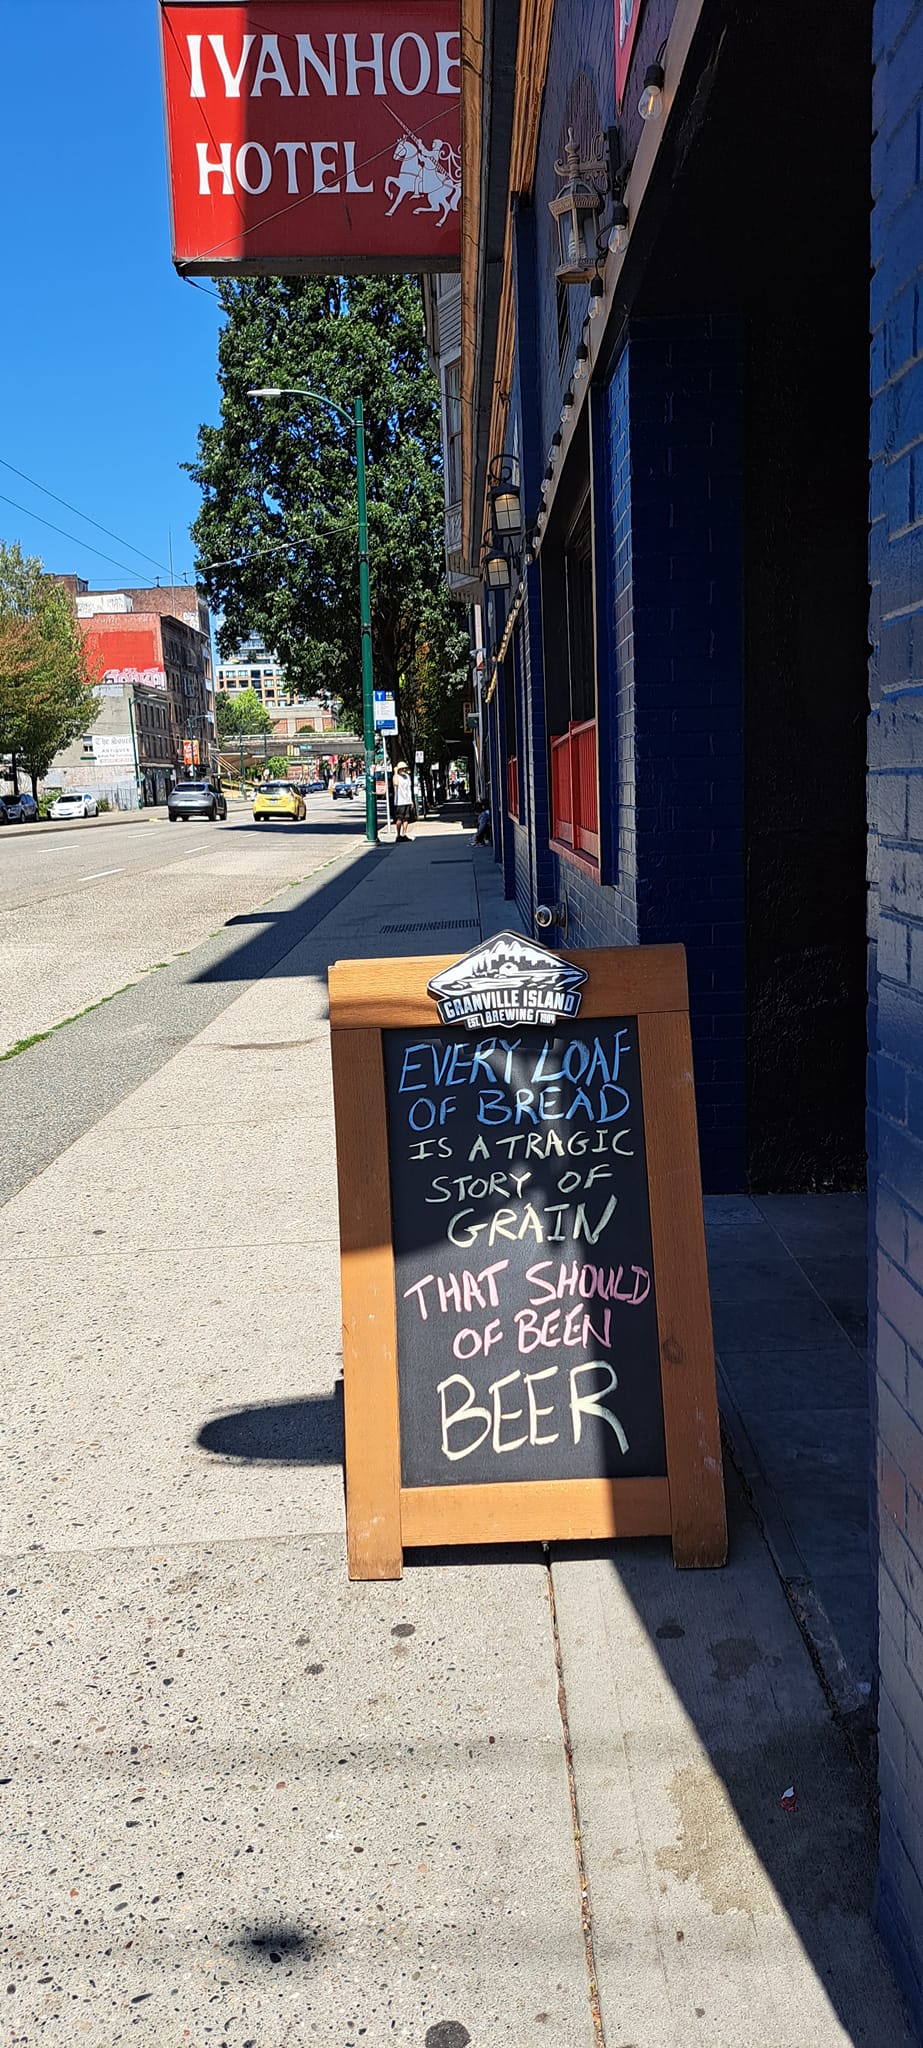 IVANHOE
HOTEL
GRANVILLE ISLAND
EST. BREWING 1984
EVERY LOAF
OF BREAD
IS A TRAGIC
STORY OF
GRAIN
THAT SHOULD
OF BEEN
BEER